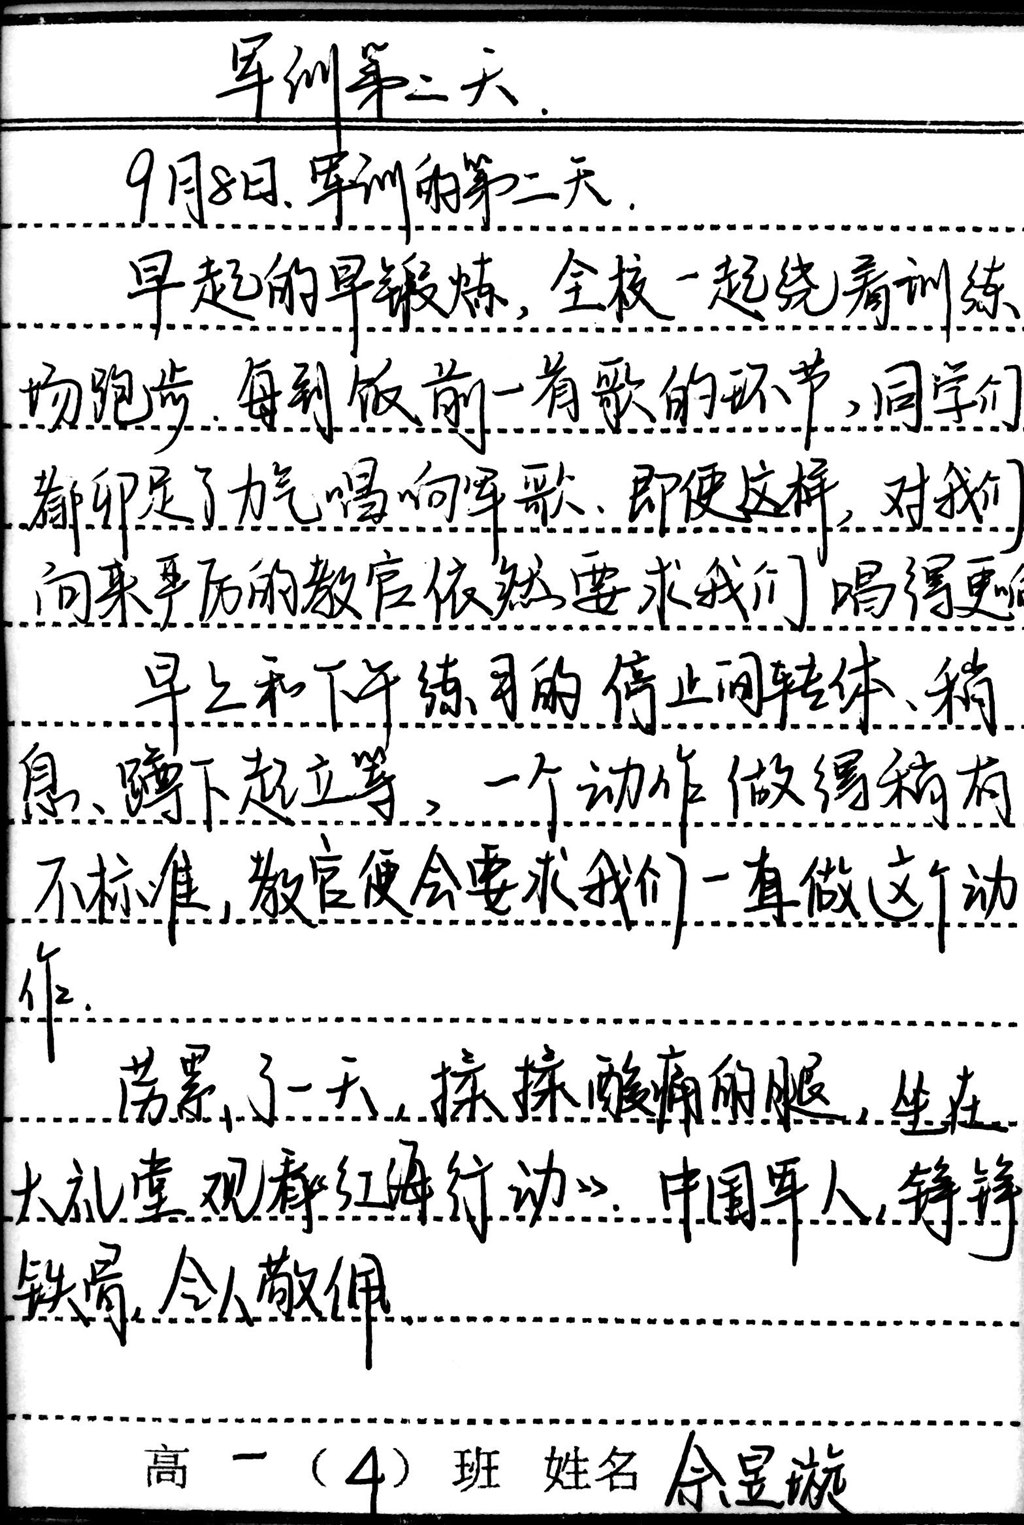 军训第二天.
9月8日、军训的第二天.
早起的早锻炼,全校一起绕着训练
场跑步.每到饭前一首歌的环节,同学们
都卯足了力气唱响军歌、即便这样,对我们
向来严厉的教官依然要求我们唱得更响
早上和下午练习的停止间转体、稍
息、蹲下起立等,一个动作做得稍有
不标准,教官便会要求我们一直做这个动
作.
劳累了一天,揉揉酸痛的腿,坐在
大礼堂观看《红海行动》.中国军人,铮铮
铁骨,令人敬佩.
高一(4)班 姓名 佘昱璇